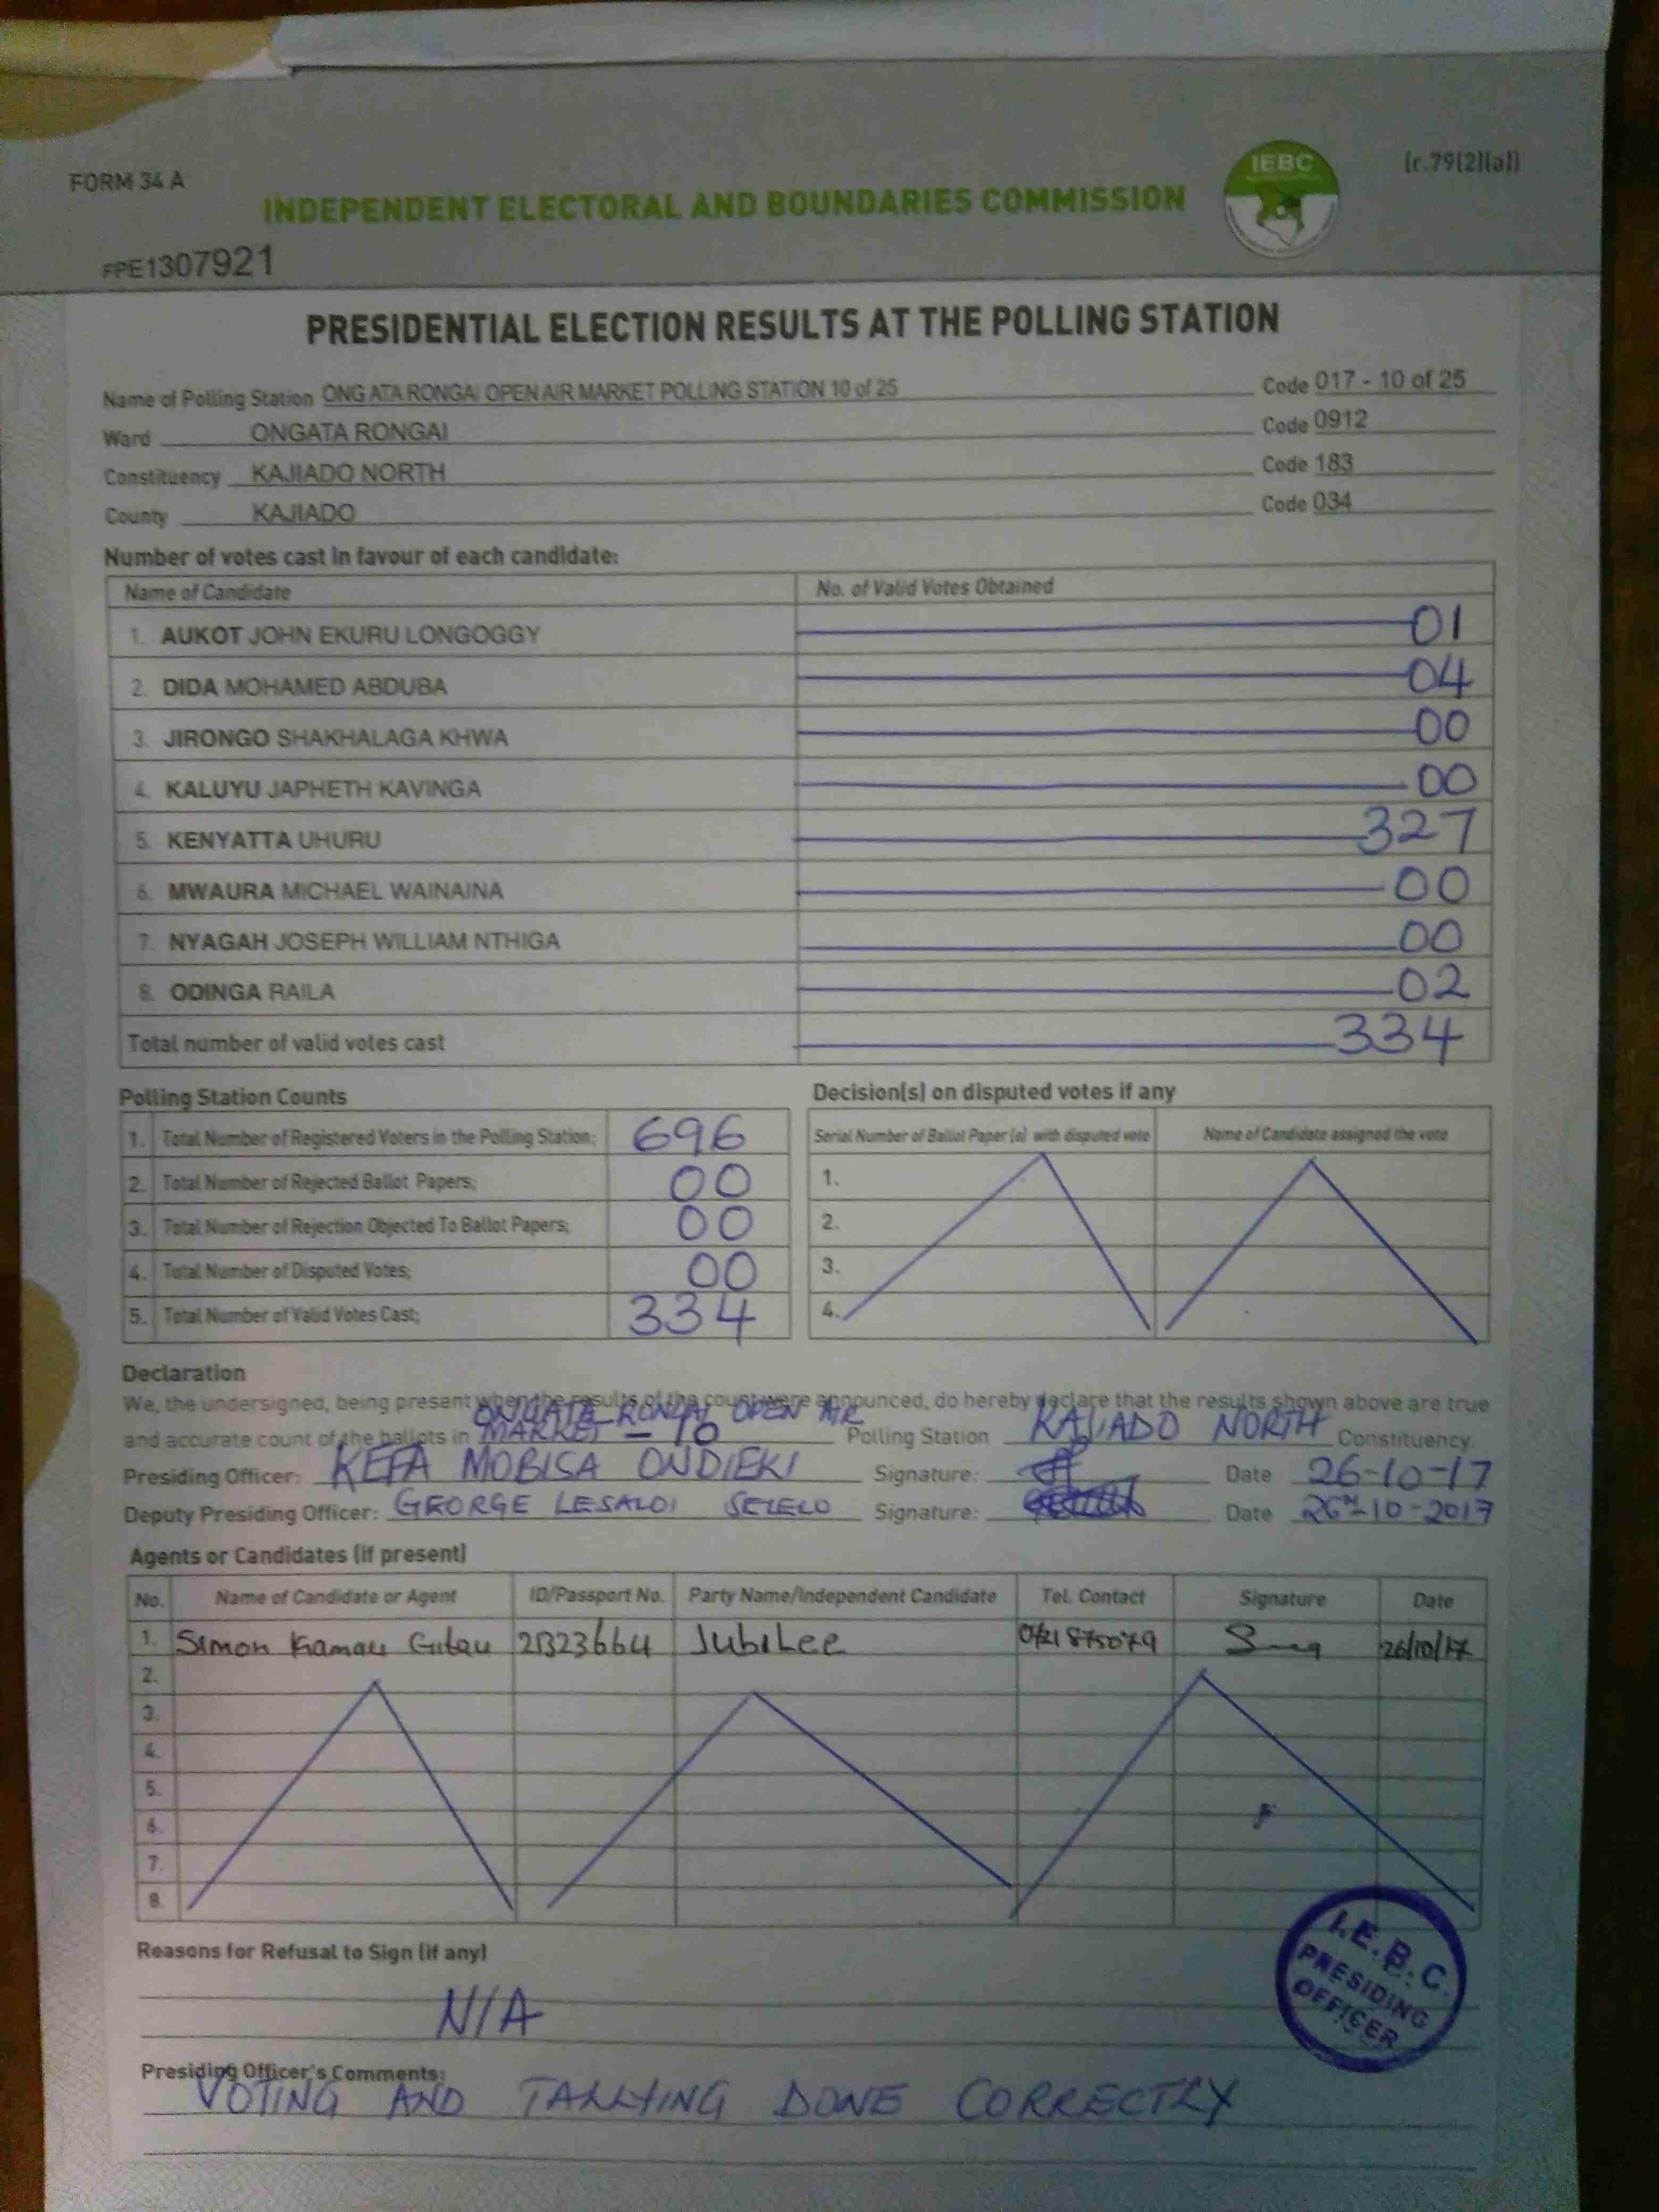 FORM 34 A
IEBC
(r.79(2)(a))
INDEPENDENT ELECTORAL AND BOUNDARIES COMMISSION
FPE1307921
PRESIDENTIAL ELECTION RESULTS AT THE POLLING STATION
Name of Polling Station ONG ATA RONGAI OPEN AIR MARKET POLLING STATION 10 of 25 Code 017 - 10 of 25
Ward ONGATA RONGAI Code 0912
Constituency KAJIADO NORTH Code 183
County KAJIADO Code 034
Number of votes cast in favour of each candidate:
Name of Candidate No. of Valid Votes Obtained
1. AUKOT JOHN EKURU LONGOGGY 01
2. DIDA MOHAMED ABDUBA 04
3. JIRONGO SHAKHALAGA KHWA 00
4. KALUYU JAPHETH KAVINGA 00
5. KENYATTA UHURU 327
6. MWAURA MICHAEL WAINAINA 00
7. NYAGAH JOSEPH WILLIAM NTHIGA 00
8. ODINGA RAILA 02
Total number of valid votes cast 334
Polling Station Counts
1. Total Number of Registered Voters in the Polling Station; 696
2. Total Number of Rejected Ballot Papers; 00
3. Total Number of Rejection Objected To Ballot Papers; 00
4. Total Number of Disputed Votes; 00
5. Total Number of Valid Votes Cast; 334
Decision(s) on disputed votes if any
Serial Number of Ballot Paper (s) with disputed vote Name of Candidate assigned the vote
1.
2.
3.
4.
Declaration
We, the undersigned, being present when the results of the count were announced, do hereby declare that the results shown above are true
and accurate count of the ballots in ONGATA RONGAI OPEN AIR MARKET - 10 Polling Station KAJIADO NORTH Constituency
Presiding Officer: KEFA MOBISA ONDIEKI Signature: Date 26-10-17
Deputy Presiding Officer: GEORGE LESALOI SELELO Signature: Date 26TH-10-2017
Agents or Candidates (if present)
No. Name of Candidate or Agent ID/Passport No. Party Name/Independent Candidate Tel. Contact Signature Date
1. Simon Kamau Gitau Jubilee 26/10/17
2.
3.
4.
5.
6.
7.
8.
Reasons for Refusal to Sign (if any)
N/A
I.E.B.C.
PRESIDING
OFFICER
Presiding Officer's Comments:
VOTING AND TALLYING DONE CORRECTLY